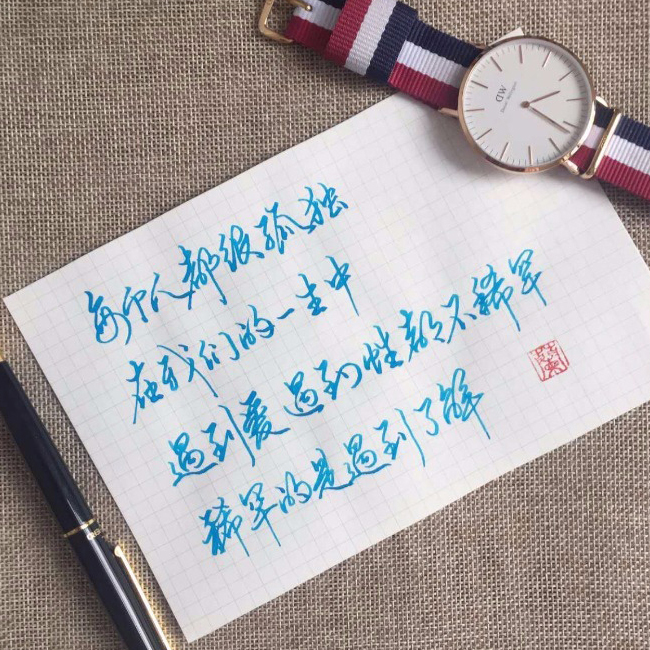 每个人都很孤独
在我们的一生中
遇到爱 遇到性都不稀罕
稀罕的是遇到了解
DW
Daniel Wellington